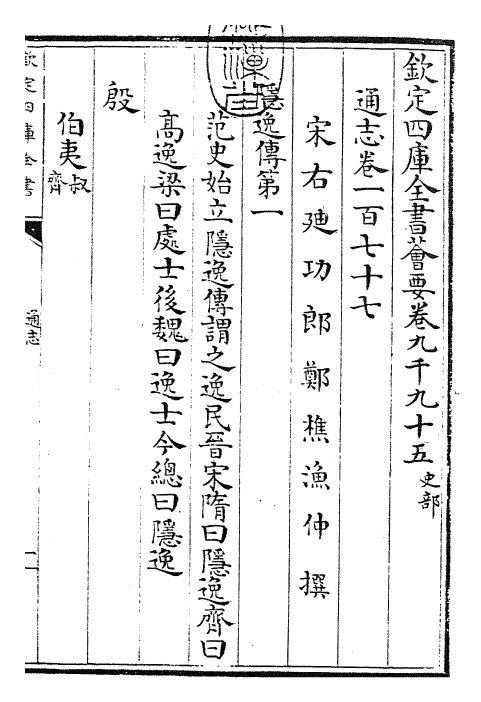 欽定四庫全書薈要卷九千九十五史部
通志卷一百七十七
宋右廸功郎鄭樵漁仲撰
隱逸傳第一
范史始立隱逸傳謂之逸民晉宋隋曰隱逸齊曰
高逸梁曰處士後魏曰逸士今總曰隱逸
殷
伯夷叔齊
欽定四庫全書
通志